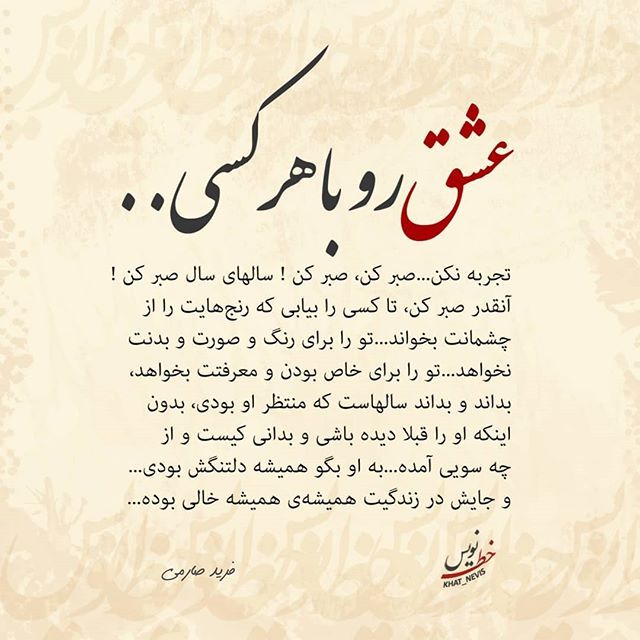 عشق رو با هر کسی..
تجربه نکن...صبر کن، صبر کن ! سالهای سال صبر کن !
آنقدر صبر کن، تا کسی را بیابی که رنج‌هایت را از
چشمانت بخواند...تو را برای رنگ و صورت و بدنت
نخواهد...تو را برای خاص بودن و معرفتت بخواهد،
بداند و بداند سالهاست که منتظر او بودی، بدون
اینکه او را قبلا دیده باشی و بدانی کیست و از
چه سویی آمده...به او بگو همیشه دلتنگش بودی...
و جایش در زندگیت همیشه‌ی همیشه خالی بوده...
خط نویس
KHAT_NEVIS
فرید صارمی